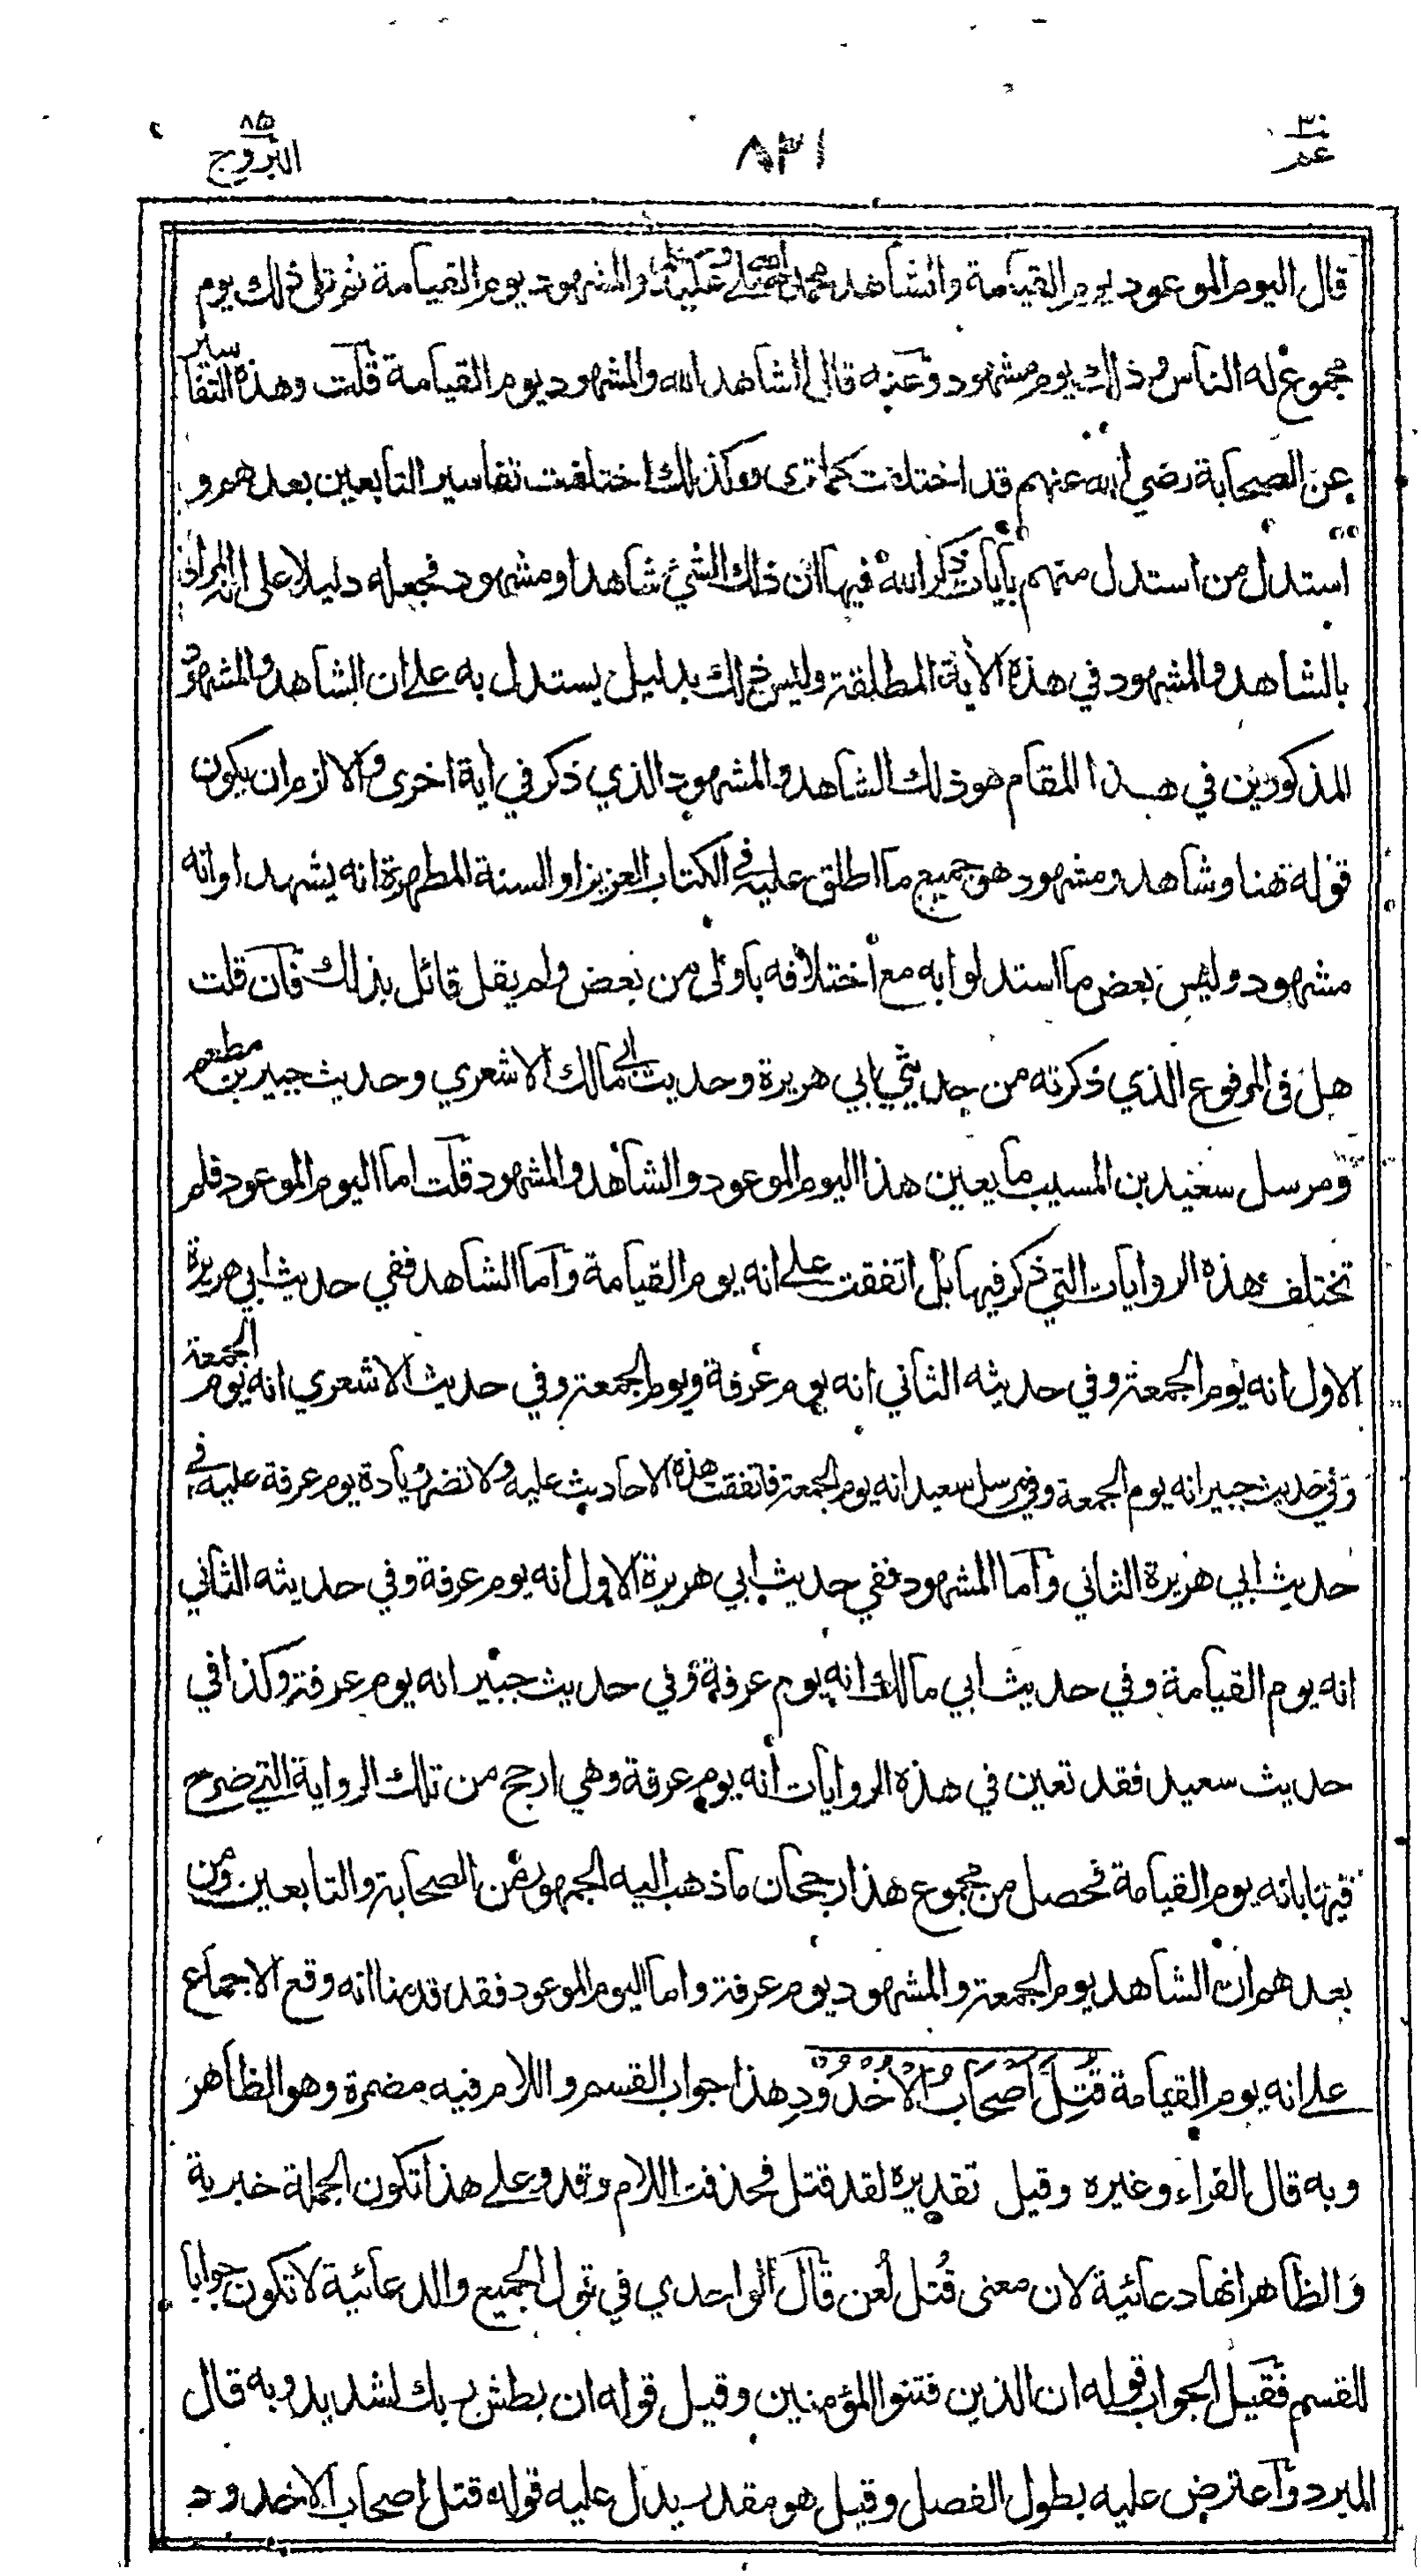 ٣٠
عم
٨٣١
٨٥
البروج
قال اليوم الموعود يوم القيامة والشاهد محمد صلى الله عليه وسلم والمشهود يوم القيامة ثم تلى ذلك يوم
مجموع له الناس وذلك يوم مشهود وعنه قال الشاهد الله والمشهود يوم القيامة قلت وهذه التفاسير
عن الصحابة رضي الله عنهم قد اختلفت كما ترى وكذلك اختلفت تفاسير التابعين بعدهم و
استدل من استدل منهم بآيات ذكر الله فيها ان ذلك الشيء شاهد او مشهود فجعله دليلا على انه المراد
بالشاهد والمشهود في هذه الآية المطلقة وليس ذلك بدليل يستدل به على ان الشاهد والمشهود
المذكورين في هذا المقام هو ذلك الشاهد والمشهود الذي ذكر في آية اخرى والا لزم ان يكون
قوله هنا وشاهد ومشهود هو جميع ما اطلق عليه في الكتاب العزيز او السنة المطهرة انه يشهد او انه
مشهود وليس بعض ما استدلوا به مع اختلافه باولى من بعض ولم يقل قائل بذلك فان قلت
هل في المرفوع الذي ذكرته من حديثي ابي هريرة وحديث ابي مالك الاشعري وحديث جبير بن مطعم
ومرسل سعيد بن المسيب ما يعين هذا اليوم الموعود والشاهد والمشهود قلت اما اليوم الموعود فلم
تختلف هذه الروايات التي ذكر فيها بل اتفقت على انه يوم القيامة واما الشاهد ففي حديث ابي هريرة
الاول انه يوم الجمعة وفي حديثه الثاني انه يوم عرفة ويوم الجمعة وفي حديث الاشعري انه يوم الجمعة
وفي حديث جبير انه يوم الجمعة وفي مرسل سعيد انه يوم الجمعة فاتفقت هذه الاحاديث عليه ولا تضر زيادة يوم عرفة عليه في
حديث ابي هريرة الثاني واما المشهود ففي حديث ابي هريرة الاول انه يوم عرفة وفي حديثه الثاني
انه يوم القيامة وفي حديث ابي مالك انه يوم عرفة وفي حديث جبير انه يوم عرفة وكذا في
حديث سعيد فقد تعين في هذه الروايات انه يوم عرفة وهي ارجح من تلك الرواية التي صرح
فيها بانه يوم القيامة فحصل من مجموع هذا رجحان ما ذهب اليه الجمهور من الصحابة والتابعين ومن
بعدهم ان الشاهد يوم الجمعة والمشهود يوم عرفة واما اليوم الموعود فقد قدمنا انه وقع الاجماع
على انه يوم القيامة قُتِلَ أَصْحَابُ الْأُخْدُودِ هذا جواب القسم واللام فيه مضمرة وهو الظاهر
وبه قال الفراء وغيره وقيل تقديره لقد قتل فحذفت اللام وقد وعلى هذا تكون الجملة خبرية
والظاهر انها دعائية لان معنى قُتل لُعن قال الواحدي في قول الجميع والدعائية لا تكون جوابا
للقسم فقيل الجواب قوله ان الذين فتنوا المؤمنين وقيل قوله ان بطش ربك لشديد وبه قال
المبرد واعترض عليه بطول الفصل وقيل هو مقدر يدل عليه قوله قتل اصحاب الاخدود